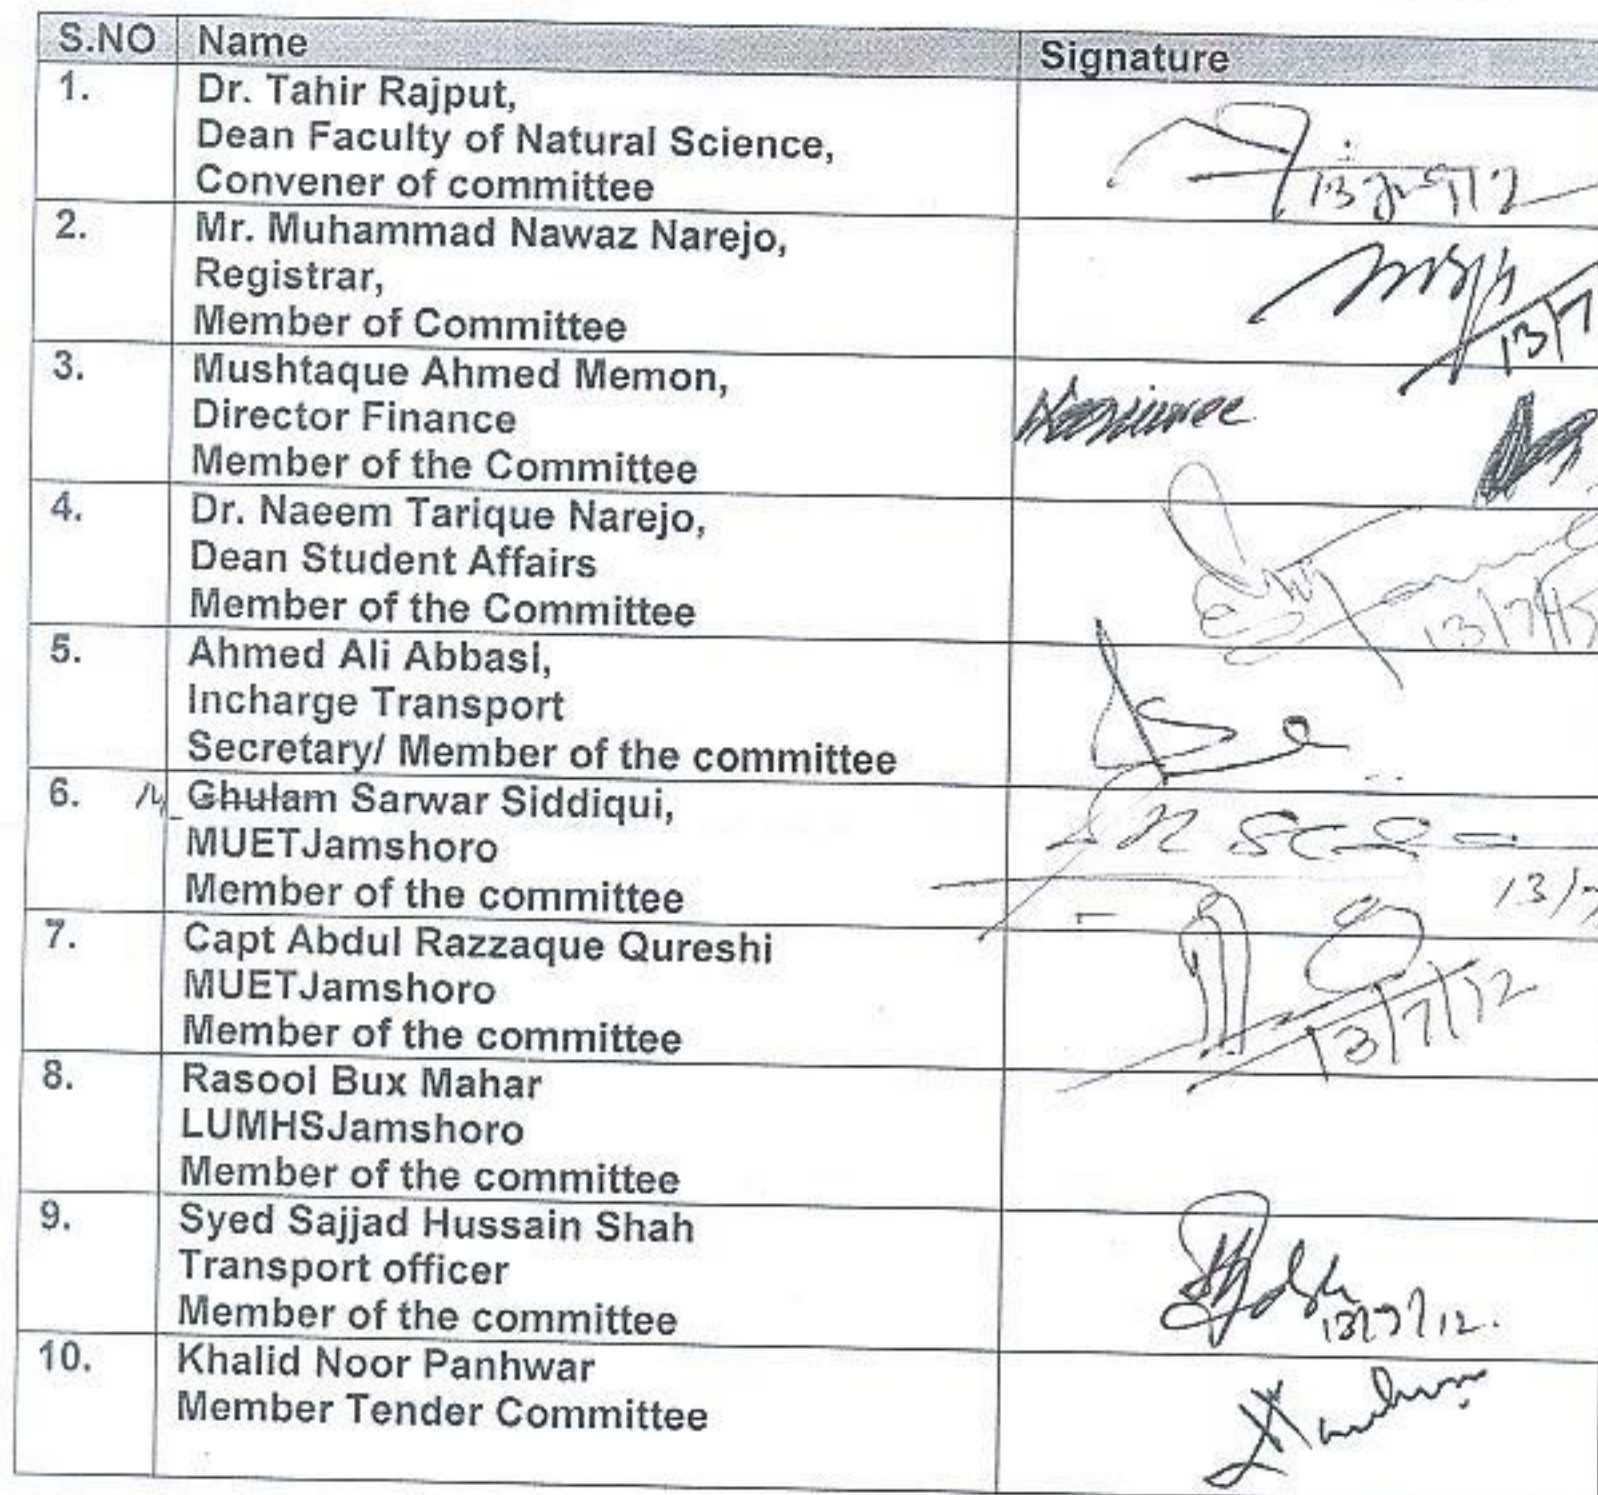 S.NO Name Signature
1. Dr. Tahir Rajput,
Dean Faculty of Natural Science,
Convener of committee
13 July 12
2. Mr. Muhammad Nawaz Narejo,
Registrar,
Member of Committee
13/7
3. Mushtaque Ahmed Memon,
Director Finance
Member of the Committee
4. Dr. Naeem Tarique Narejo,
Dean Student Affairs
Member of the Committee
13/7/12
5. Ahmed Ali Abbasi,
Incharge Transport
Secretary/ Member of the committee
6. Ghulam Sarwar Siddiqui,
MUETJamshoro
Member of the committee
13/7
7. Capt Abdul Razzaque Qureshi
MUETJamshoro
Member of the committee
13/7/12
8. Rasool Bux Mahar
LUMHSJamshoro
Member of the committee
9. Syed Sajjad Hussain Shah
Transport officer
Member of the committee
13/7/12.
10. Khalid Noor Panhwar
Member Tender Committee